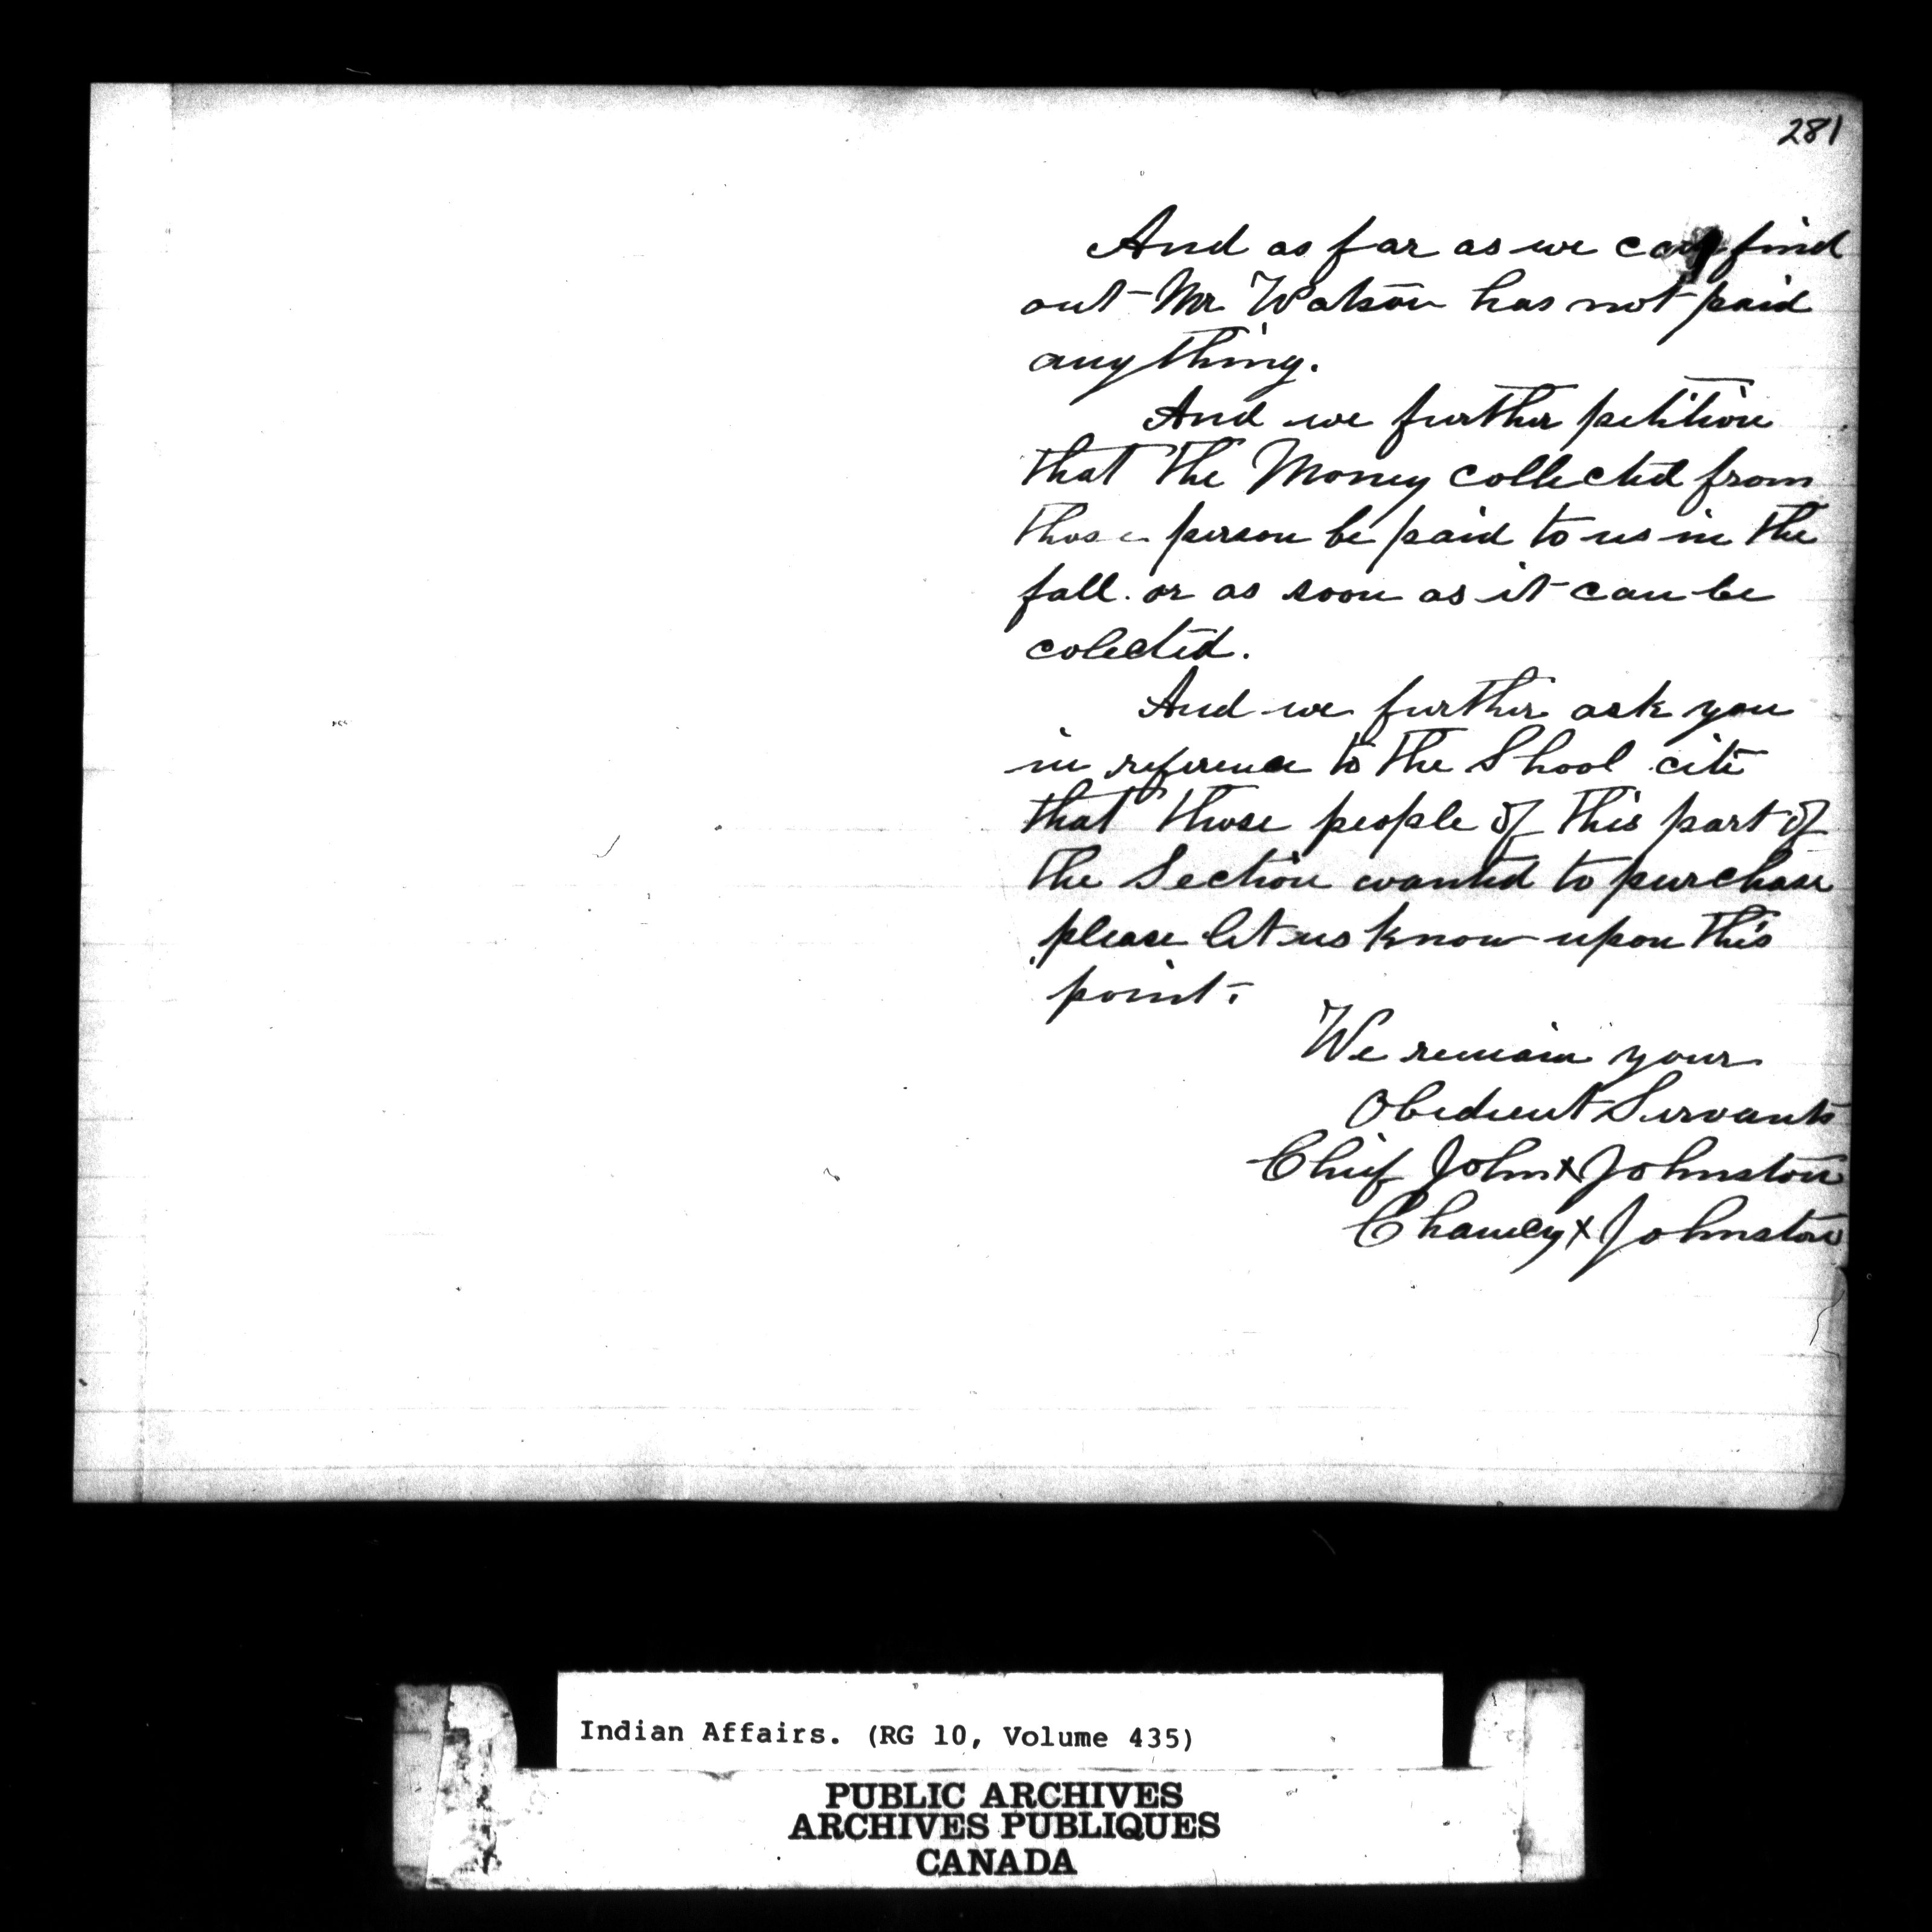 281
And as far as we can find
out Mr Watson has not paid
anything.
And we further petition
that the Money collected from
those person be paid to us in the
fall. or as soon as it can be
colected.
And we further ask you
in reference to the Shool cite
that those people of this part of
the Section wanted to purchase
please let us know upon this
point.
We remain your
Obedient Servants
Chief John X Johnston
Chancy X Johnston
Indian Affairs. (RG 10, Volume 435)
PUBLIC ARCHIVES
ARCHIVES PUBLIQUES
CANADA